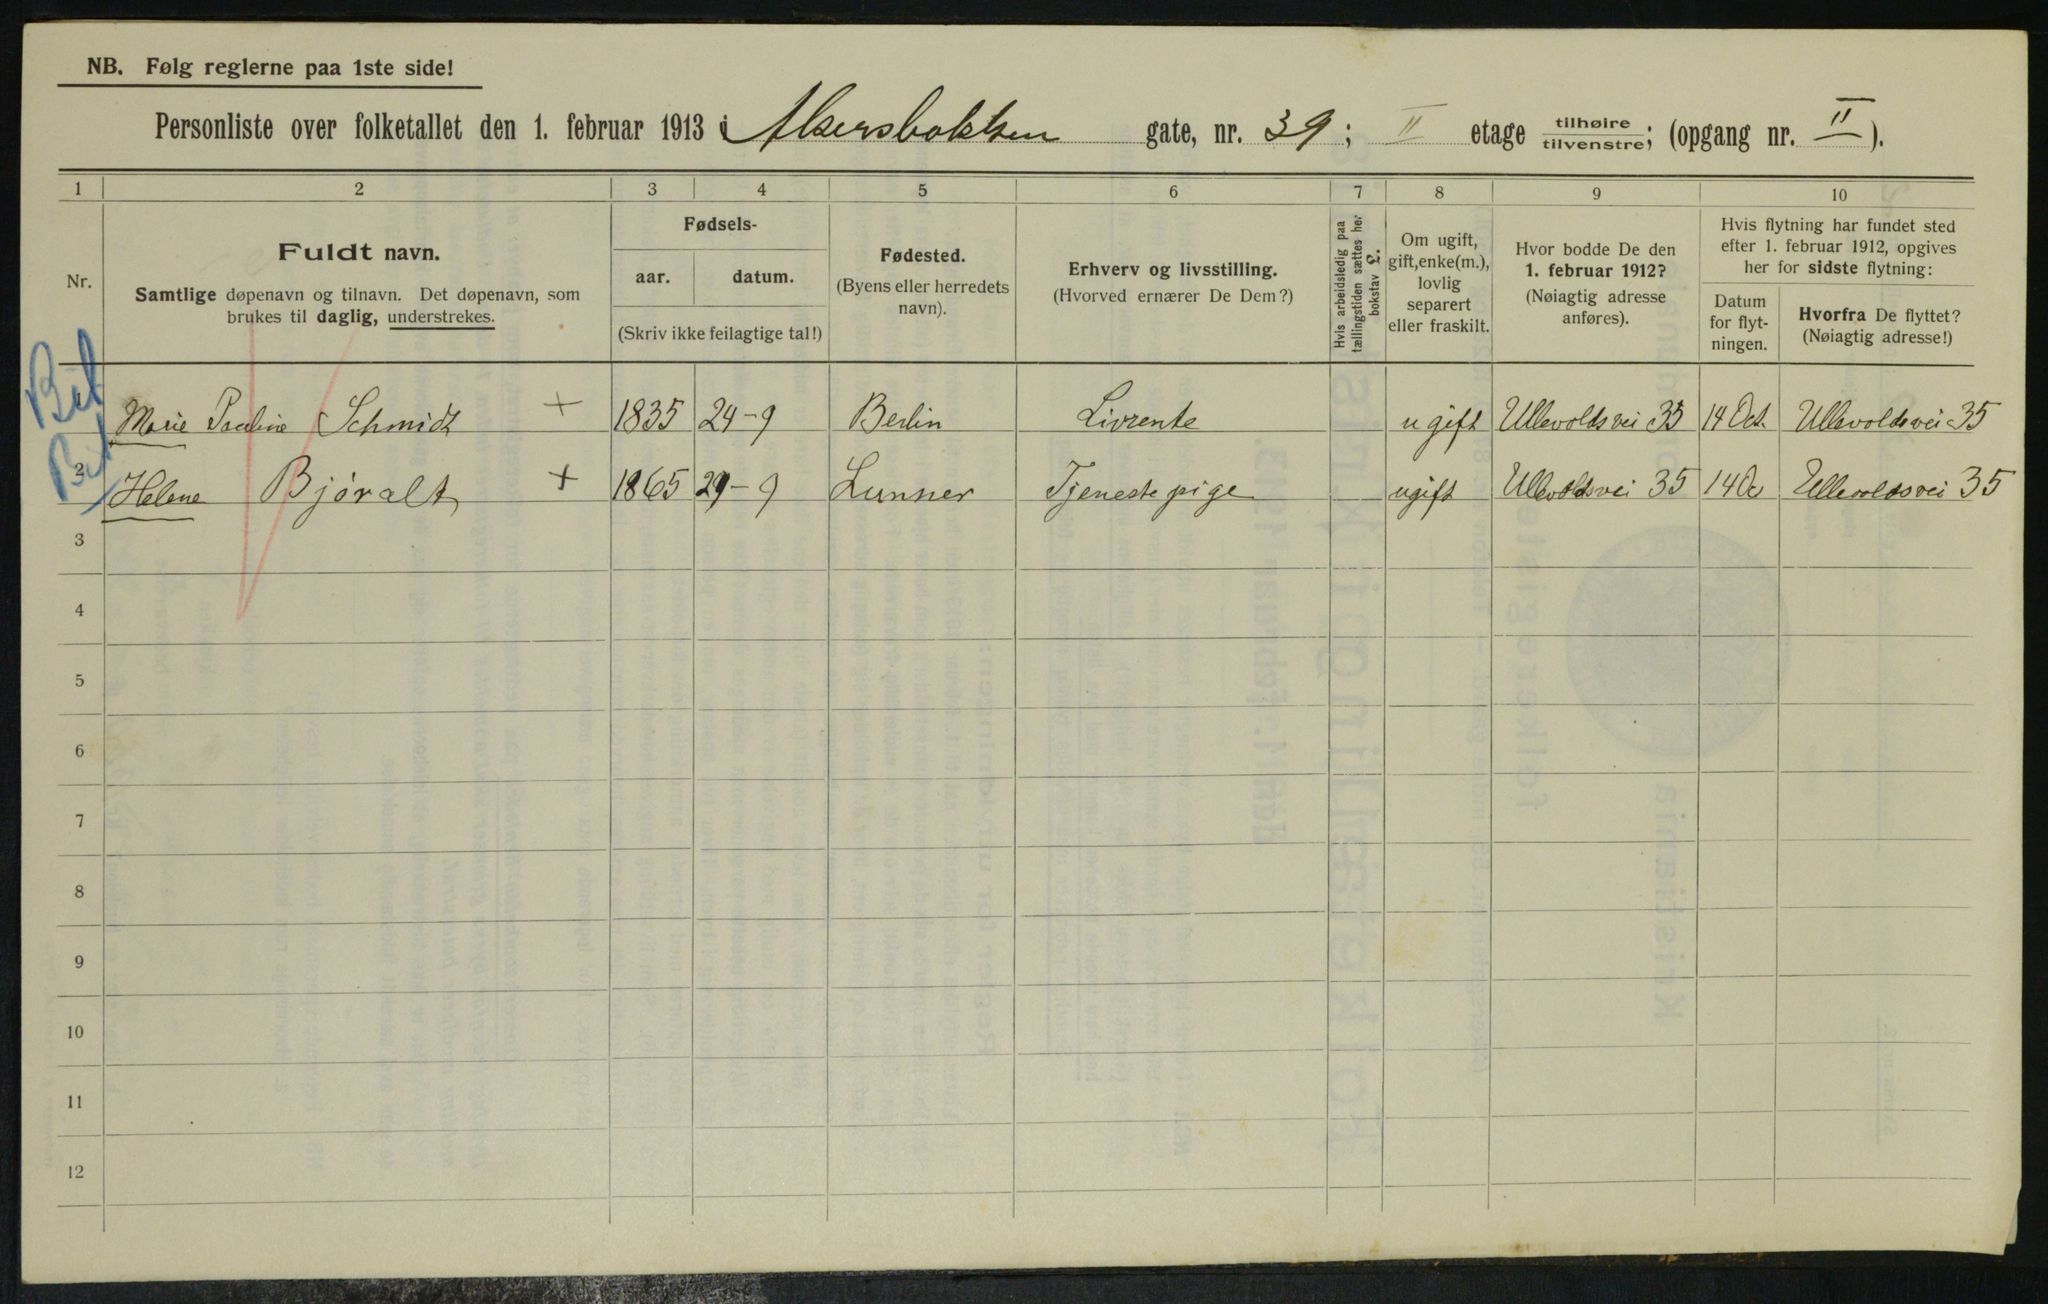 NB. Følg reglerne paa 1ste side!
Personliste over folketallet den 1. februar 1913 i Akersbakken gate, nr. 39; II etage tilhøire / tilvenstre; (opgang nr. II).
1 2 3 4 5 6 7 8 9 10
Nr.
Fuldt navn.
Samtlige døpenavn og tilnavn. Det døpenavn, som
brukes til daglig, understrekes.
Fødsels-
aar. datum.
(Skriv ikke feilagtige tal!)
Fødested.
(Byens eller herredets
navn).
Erhverv og livsstilling.
(Hvorved ernærer De Dem?)
Hvis arbeidsledig paa
tællingstiden sættes her
bokstav L.
Om ugift,
gift, enke(m.),
lovlig
separert
eller fraskilt.
Hvor bodde De den
1. februar 1912?
(Nøiagtig adresse
anføres).
Hvis flytning har fundet sted
efter 1. februar 1912, opgives
her for sidste flytning:
Datum
for flyt-
ningen.
Hvorfra De flyttet?
(Nøiagtig adresse!)
1 Marie Pauline Schmidt + 1835 24-9 Berlin Livrente ugift Ullevoldsvei 35 14 Oct. Ullevoldsvei 35
2 Helene Bjøralt + 1865 29-9 Lunner Tjenestepige ugift Ullevoldsvei 35 14 Oc Ullevoldsvei 35
3
4
5
6
7
8
9
10
11
12